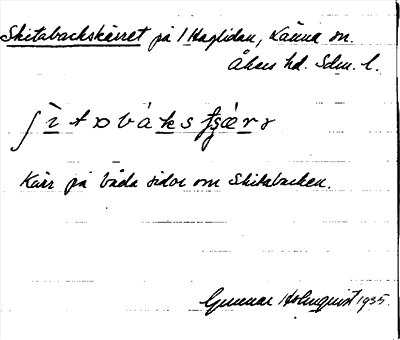 Skitabackskärret på 1 Haglidan, Länna sn.
Åkers hd. Sdm. l.
Kärr på båda sidor om Skitabacken.
Gunnar Holmquist 1935.